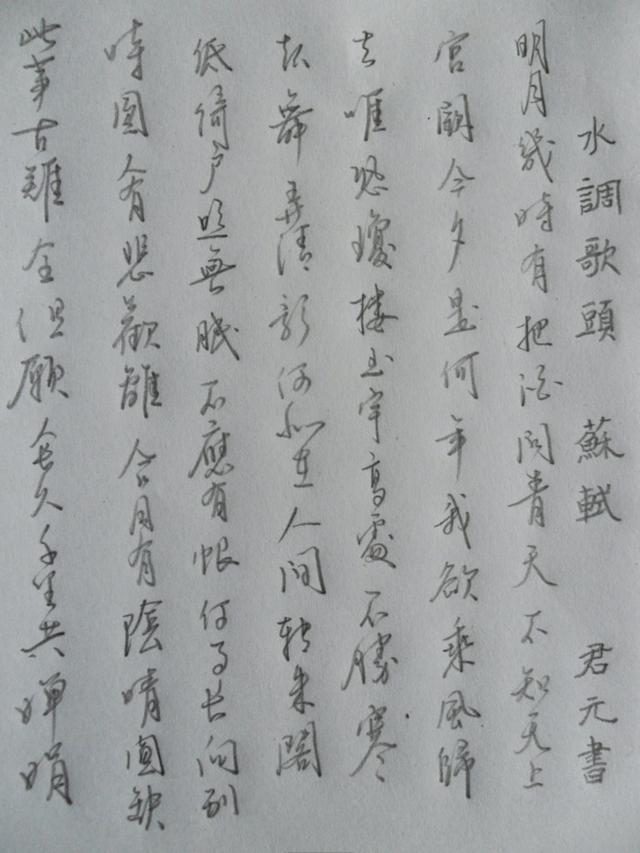 水調歌頭 蘇軾 君元書
明月幾時有把酒問青天不知天上
宮闕今夕是何年我欲乘風歸
去唯恐瓊樓玉宇高處不勝寒
起舞弄清影何似在人間轉朱閣
低綺戶照無眠不應有恨何事長向別
時圓人有悲歡離合月有陰晴圓缺
此事古難全但願人長久千里共嬋娟